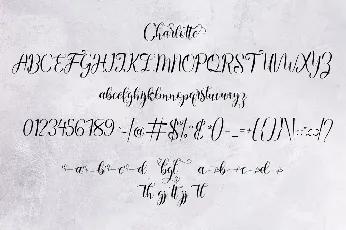 Charlotte
ABCDEFGHIJKLMNOPQRSTUVWXYZ
abcdefghijklmnopqrstuvwxyz
0123456789
a b c d bgl a b c d
Th gj tt jj Tl